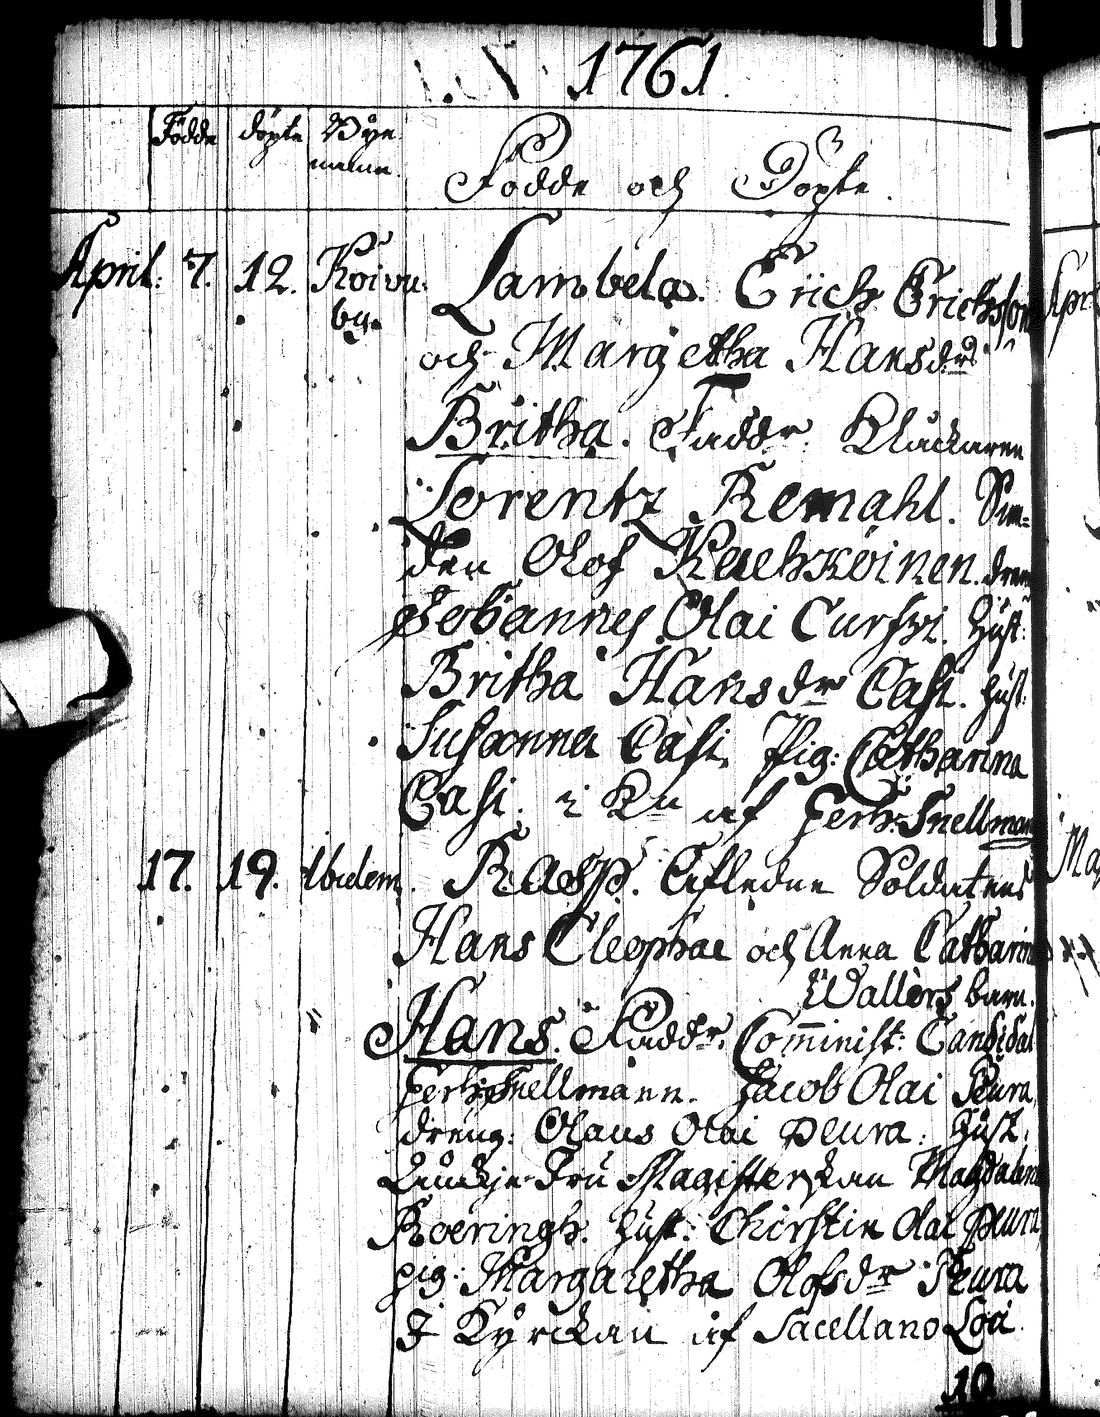 1761.
Födde döpte Bya
namn.
Födde och Döpte.
April: 7. 12. Koivu- Lambela. Erich Erichsson
by. och Margetha Hansdr
Britha. Faddr. Kluckaren
Lorentz Remahl.
den Olof Kaehköinen. dren
Johannes Olai Curssi. Hust:
Britha Hansdr Casi. Hust:
Susanna Casi. Pig: Catharina
Casi. i Kn af herr Snellman
17. 19. Ibidem. Rasp. Afledne Soldatens
Hans Cleophae och Anna Catharina
Wallers barn.
Hans. Faddr. Comminist: Candidat
herr Snellmann. Jacob Olai Peura,
dreng: Olaus Olai Peura. Hust.
Fru Magisterskan Magdalena
Roeringh. Hust: Chirstin Olai Peura,
pig: Margaretha Olofsdr Peura
I Kyrckan af Sacellano Loci.
10